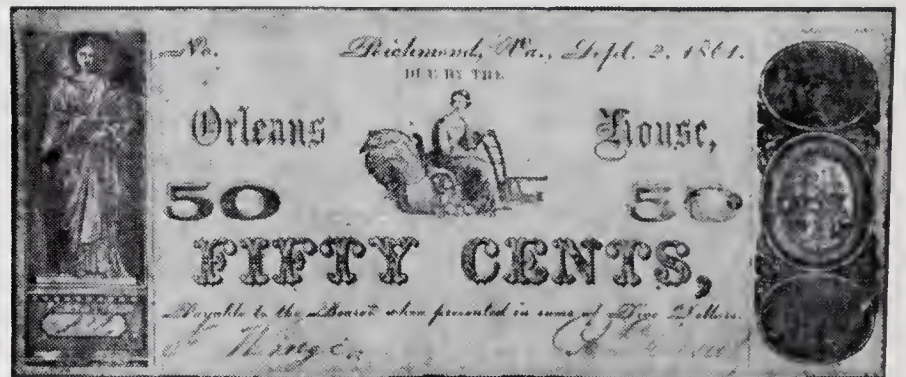 No. Richmond, Va., Sept. 2, 1861.
DUE BY THE
Orleans House,
50 50
FIFTY CENTS,
Payable to the Bearer when presented in sums of Five Dollars.